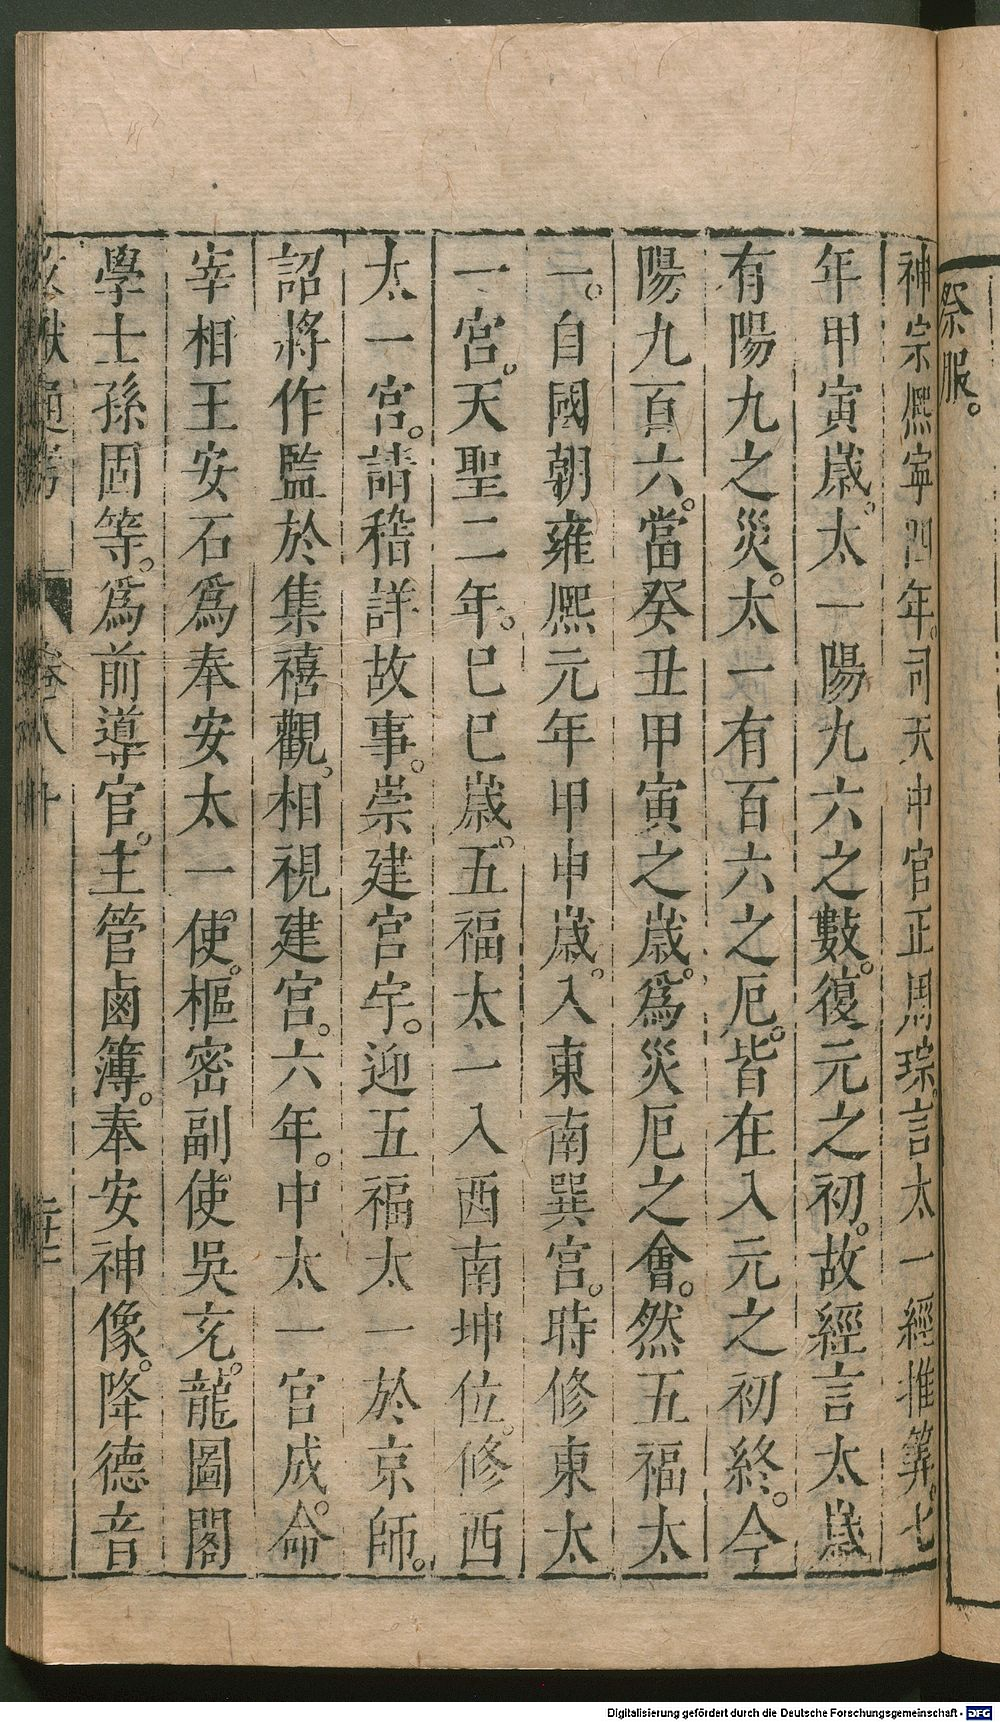 祭服。
神宗熙寧四年。司天中官正周琮。言太一經推筭。七
年甲寅歳。太一陽九六之數。復元之初。故經言太歳
有陽九之災。太一有百六之厄。皆在入元之初終。今
陽九百六。當癸丑甲寅之歳。爲災厄之會。然五福太
一。自國朝雍熙元年甲申歳。入東南巽宫。時修東太
一宫。天聖二年。巳巳歳。五福太一入西南坤位。修西
太一宫。請稽詳故事。崇建宫宇。迎五福太一於京師。
詔將作監於集禧觀。相視建宫。六年。中太一宫成。命
宰相王安石爲奉安太一使。樞密副使吳充。龍圖閣
學士孫固等。爲前導官。主管鹵簿。奉安神像。降德音
文獻通考 卷八十
Digitalisierung gefördert durch die Deutsche Forschungsgemeinschaft - DFG